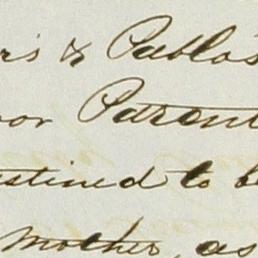 rs & Pablo's
or Parent
stined to be
Mother, as